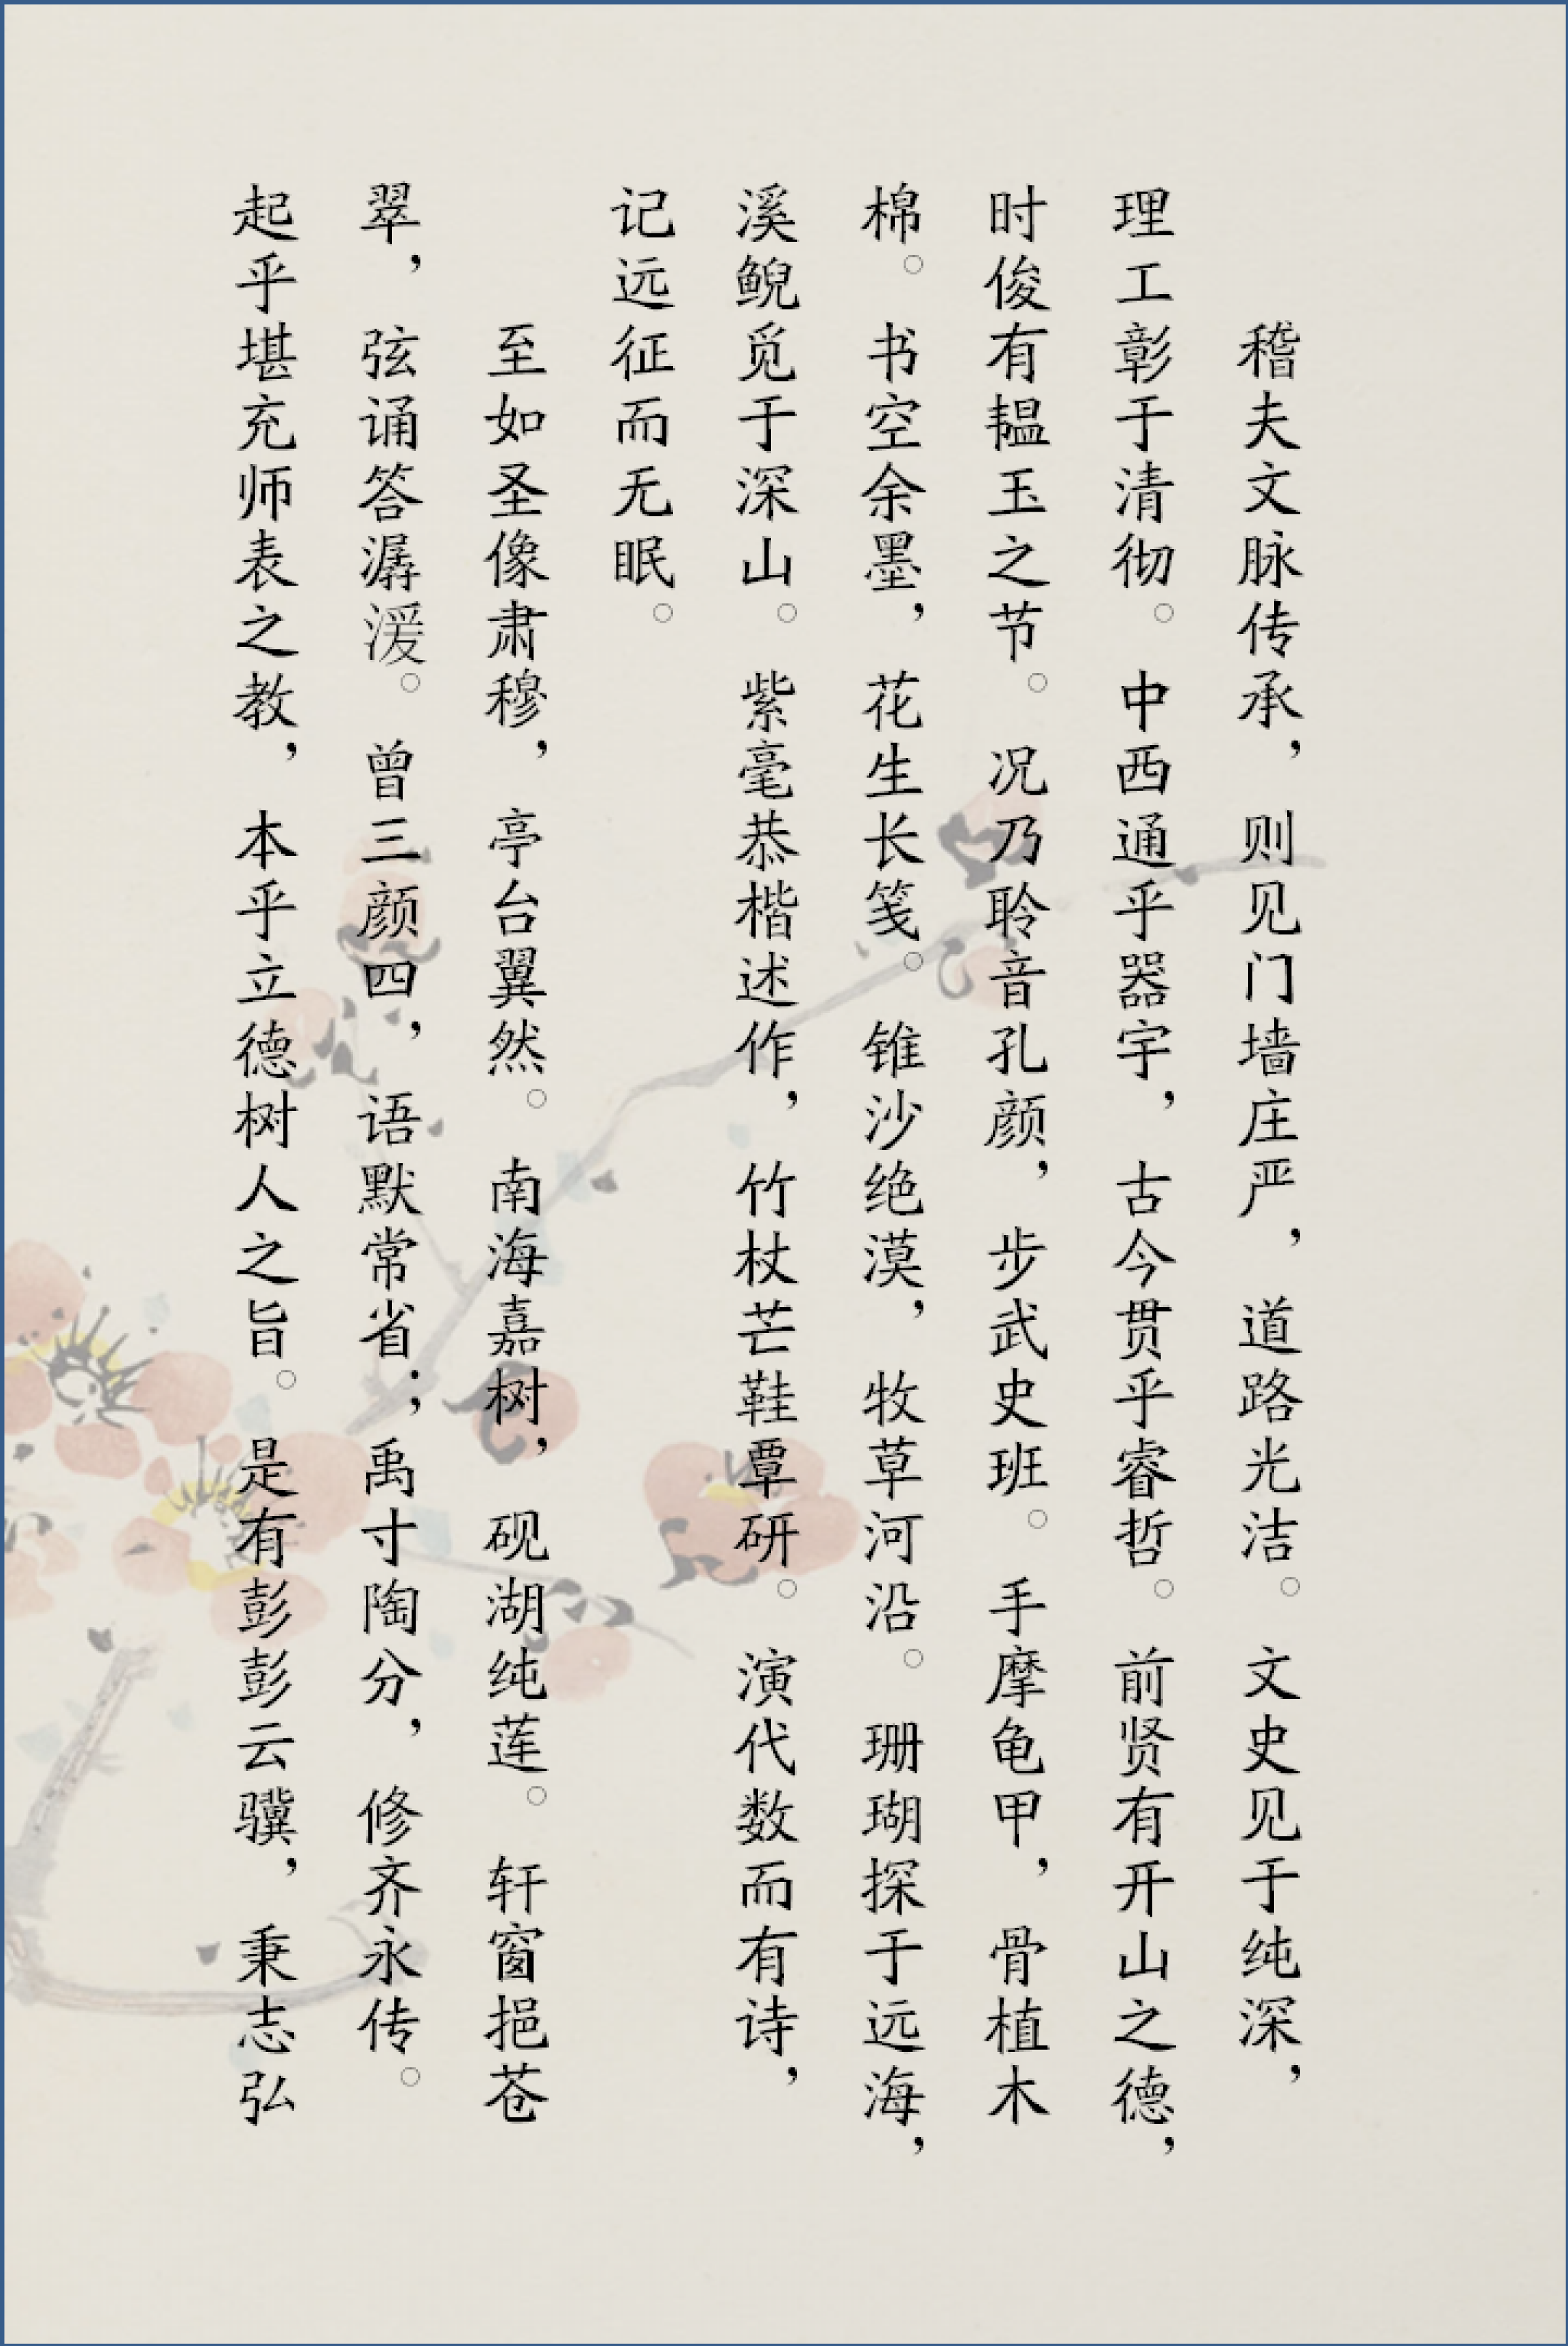 稽夫文脉传承，则见门墙庄严，道路光洁。文史见于纯深，
理工彰于清彻。中西通乎器宇，古今贯乎睿哲。前贤有开山之德，
时俊有韫玉之节。况乃聆音孔颜，步武史班。手摩龟甲，骨植木
棉。书空余墨，花生长笺。锥沙绝漠，牧草河沿。珊瑚探于远海，
溪鲵觅于深山。紫毫恭楷述作，竹杖芒鞋覃研。演代数而有诗，
记远征而无眠。
至如圣像肃穆，亭台翼然。南海嘉树，砚湖纯莲。轩窗挹苍
翠，弦诵答潺湲。曾三颜四，语默常省；禹寸陶分，修齐永传。
起乎堪充师表之教，本乎立德树人之旨。是有彭彭云骥，秉志弘